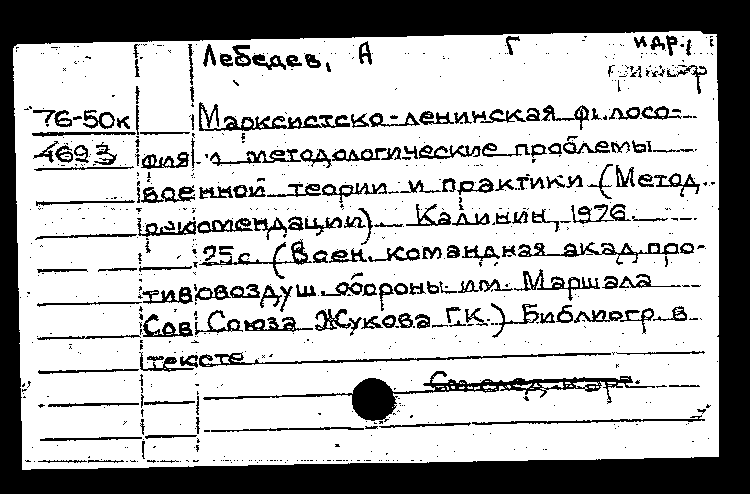 Лебедев, А Г и др.,
76-50к Марксистско-ленинская филосо-
4693 фия и методологические проблемы
военной теории и практики (Метод.
рекомендации). Калинин, 1976.
25 с. (Воен. командная акад. про-
тивовоздуш. обороны им. Маршала
Сов Союза Жукова Г.К.) Библиогр. в
тексте.
См след. карт.